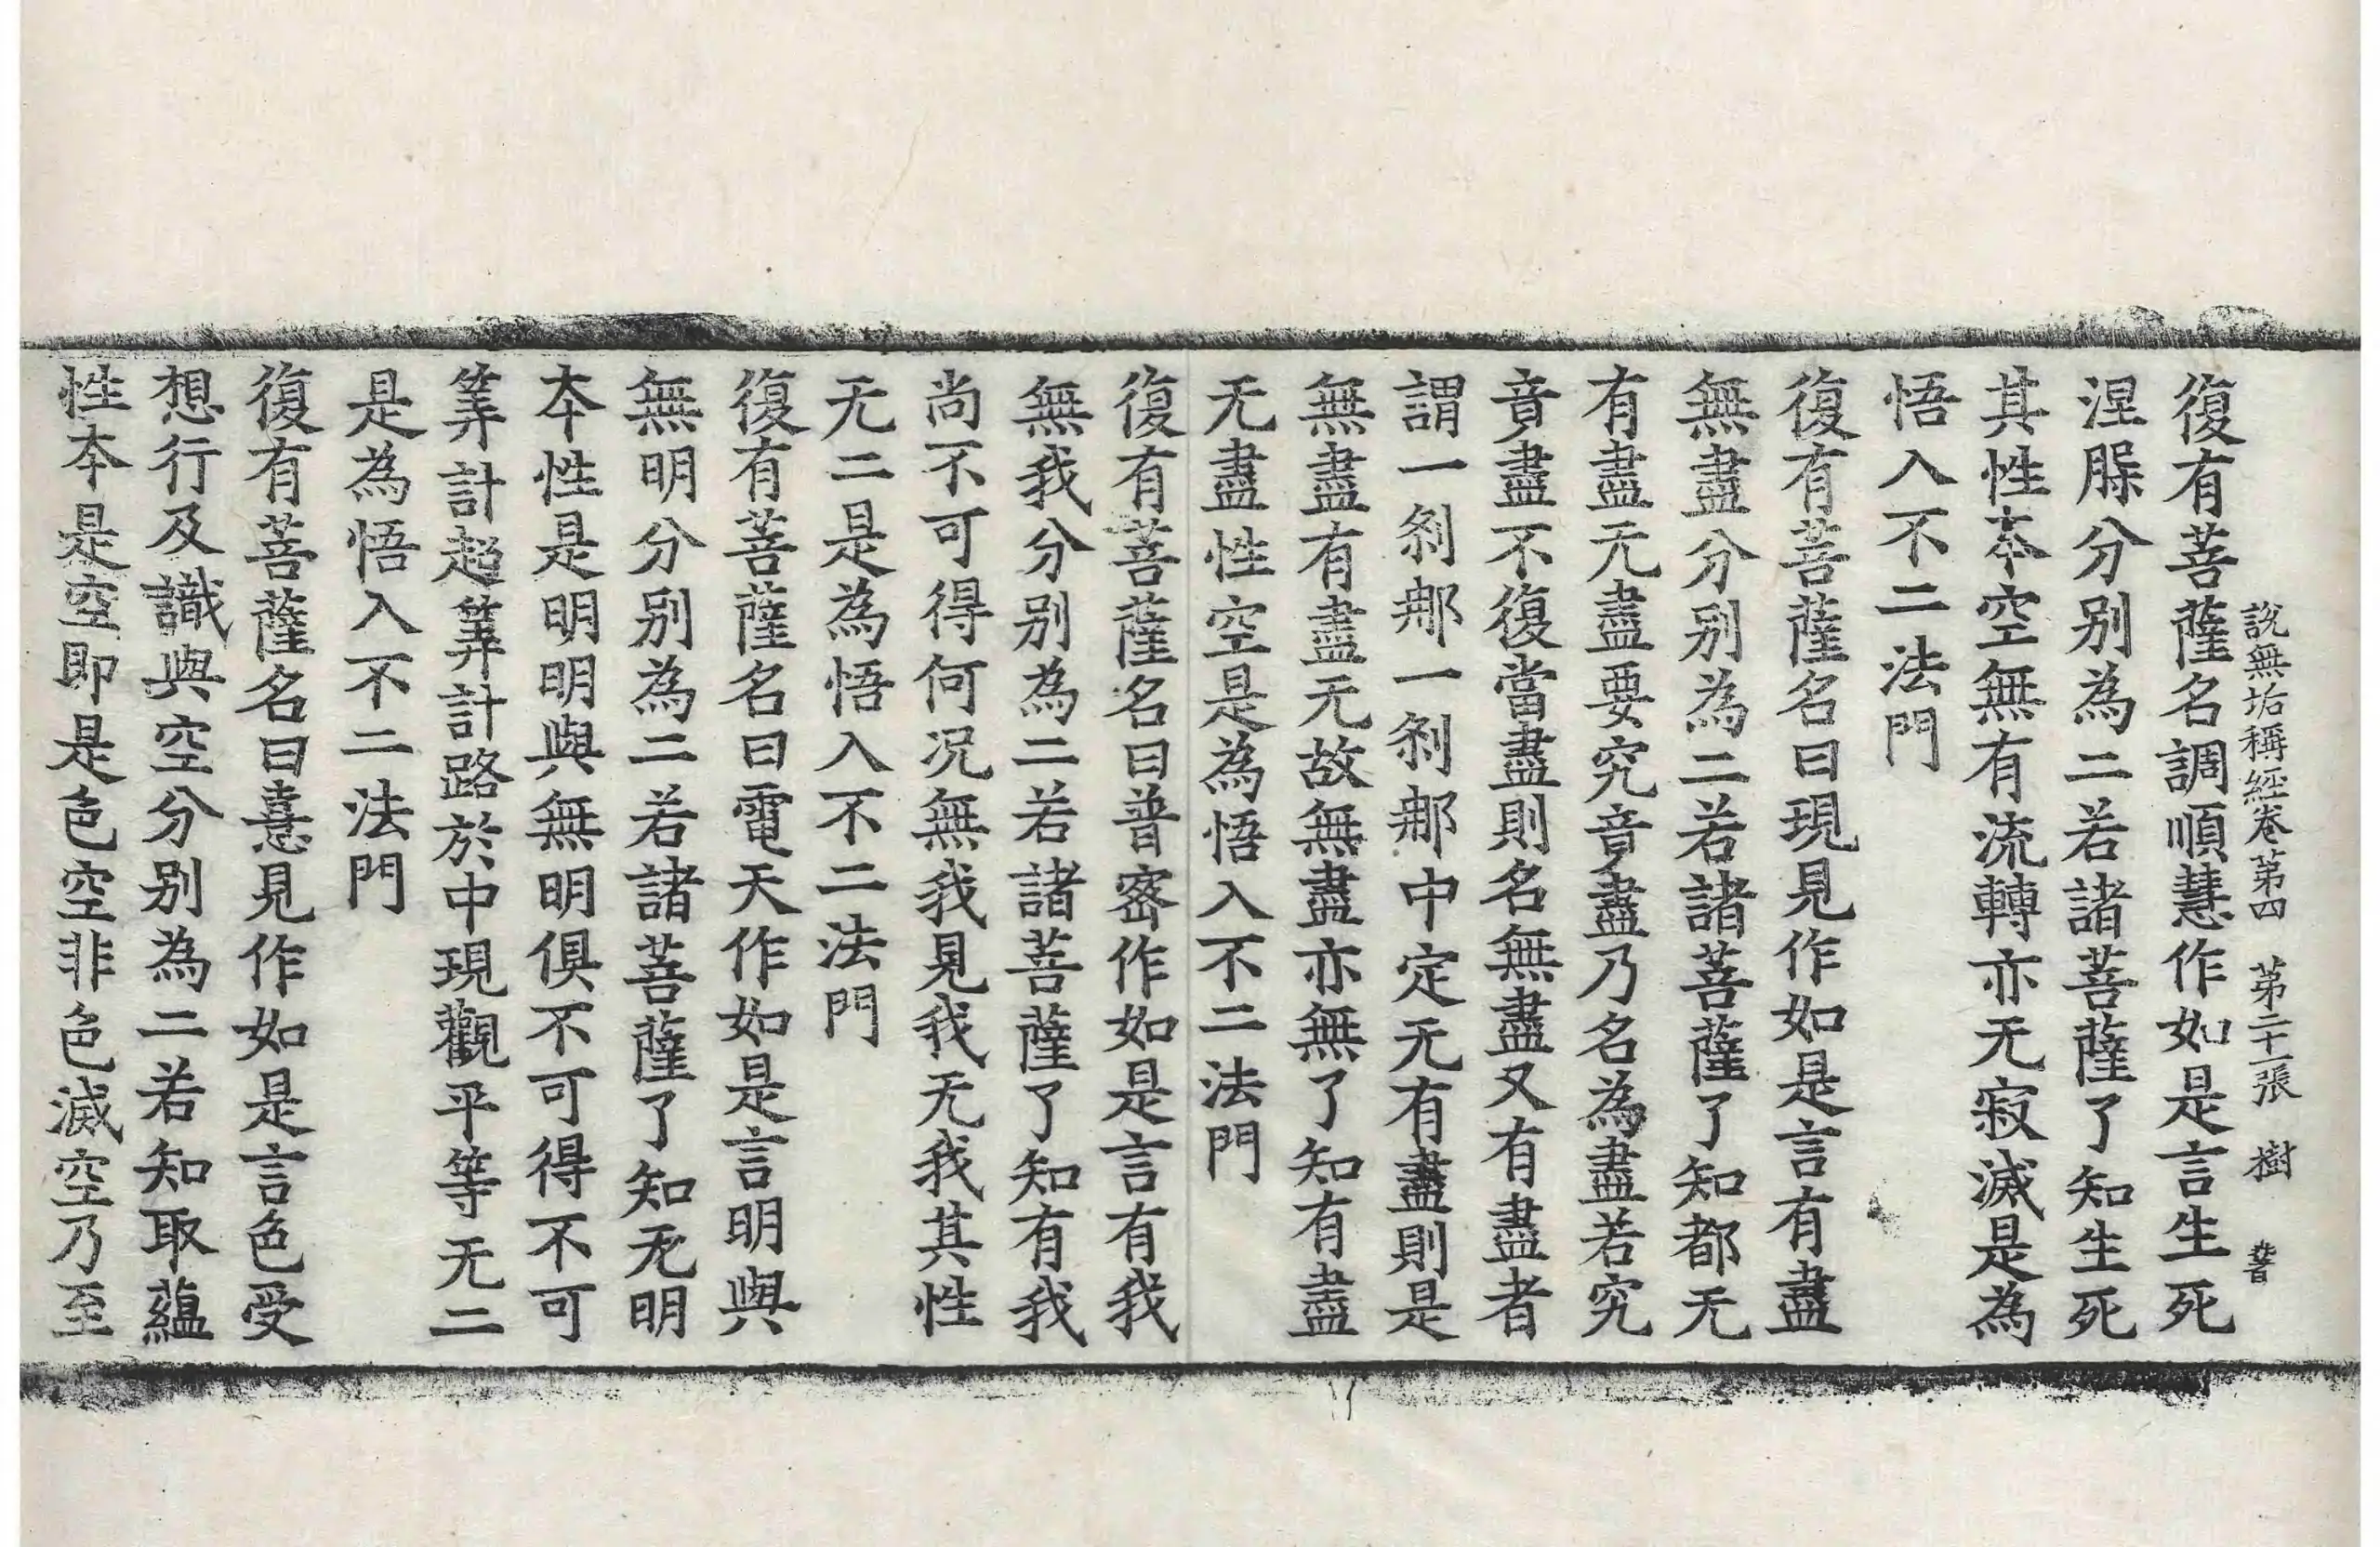 說無垢稱經卷第四 第二十一張 樹
復有菩薩名調順慧作如是言生死
涅槃分別為二若諸菩薩了知生死
其性本空無有流轉亦无寂滅是為
悟入不二法門
復有菩薩名曰現見作如是言有盡
無盡分別為二若諸菩薩了知都无
有盡无盡要究竟盡乃名為盡若究
竟盡不復當盡則名無盡又有盡者
謂一剎那一剎那中定无有盡則是
無盡有盡无故無盡亦無了知有盡
无盡性空是為悟入不二法門
復有菩薩名曰普密作如是言有我
無我分別為二若諸菩薩了知有我
尚不可得何況無我見我无我其性
无二是為悟入不二法門
復有菩薩名曰電天作如是言明與
無明分別為二若諸菩薩了知无明
本性是明明與無明俱不可得不可
筭計超筭計路於中現觀平等无二
是為悟入不二法門
復有菩薩名曰憙見作如是言色受
想行及識與空分別為二若知取蘊
性本是空即是色空非色滅空乃至